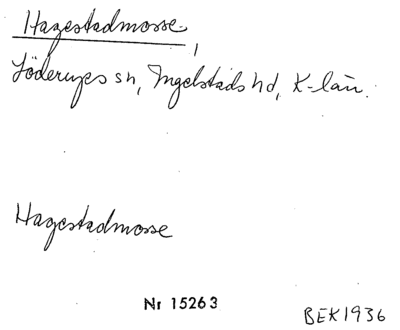 Hagestadmosse,
Löderups sn, Ingelstads hd, K-län.
Hagestadmosse
Nr 15263
BEK1936